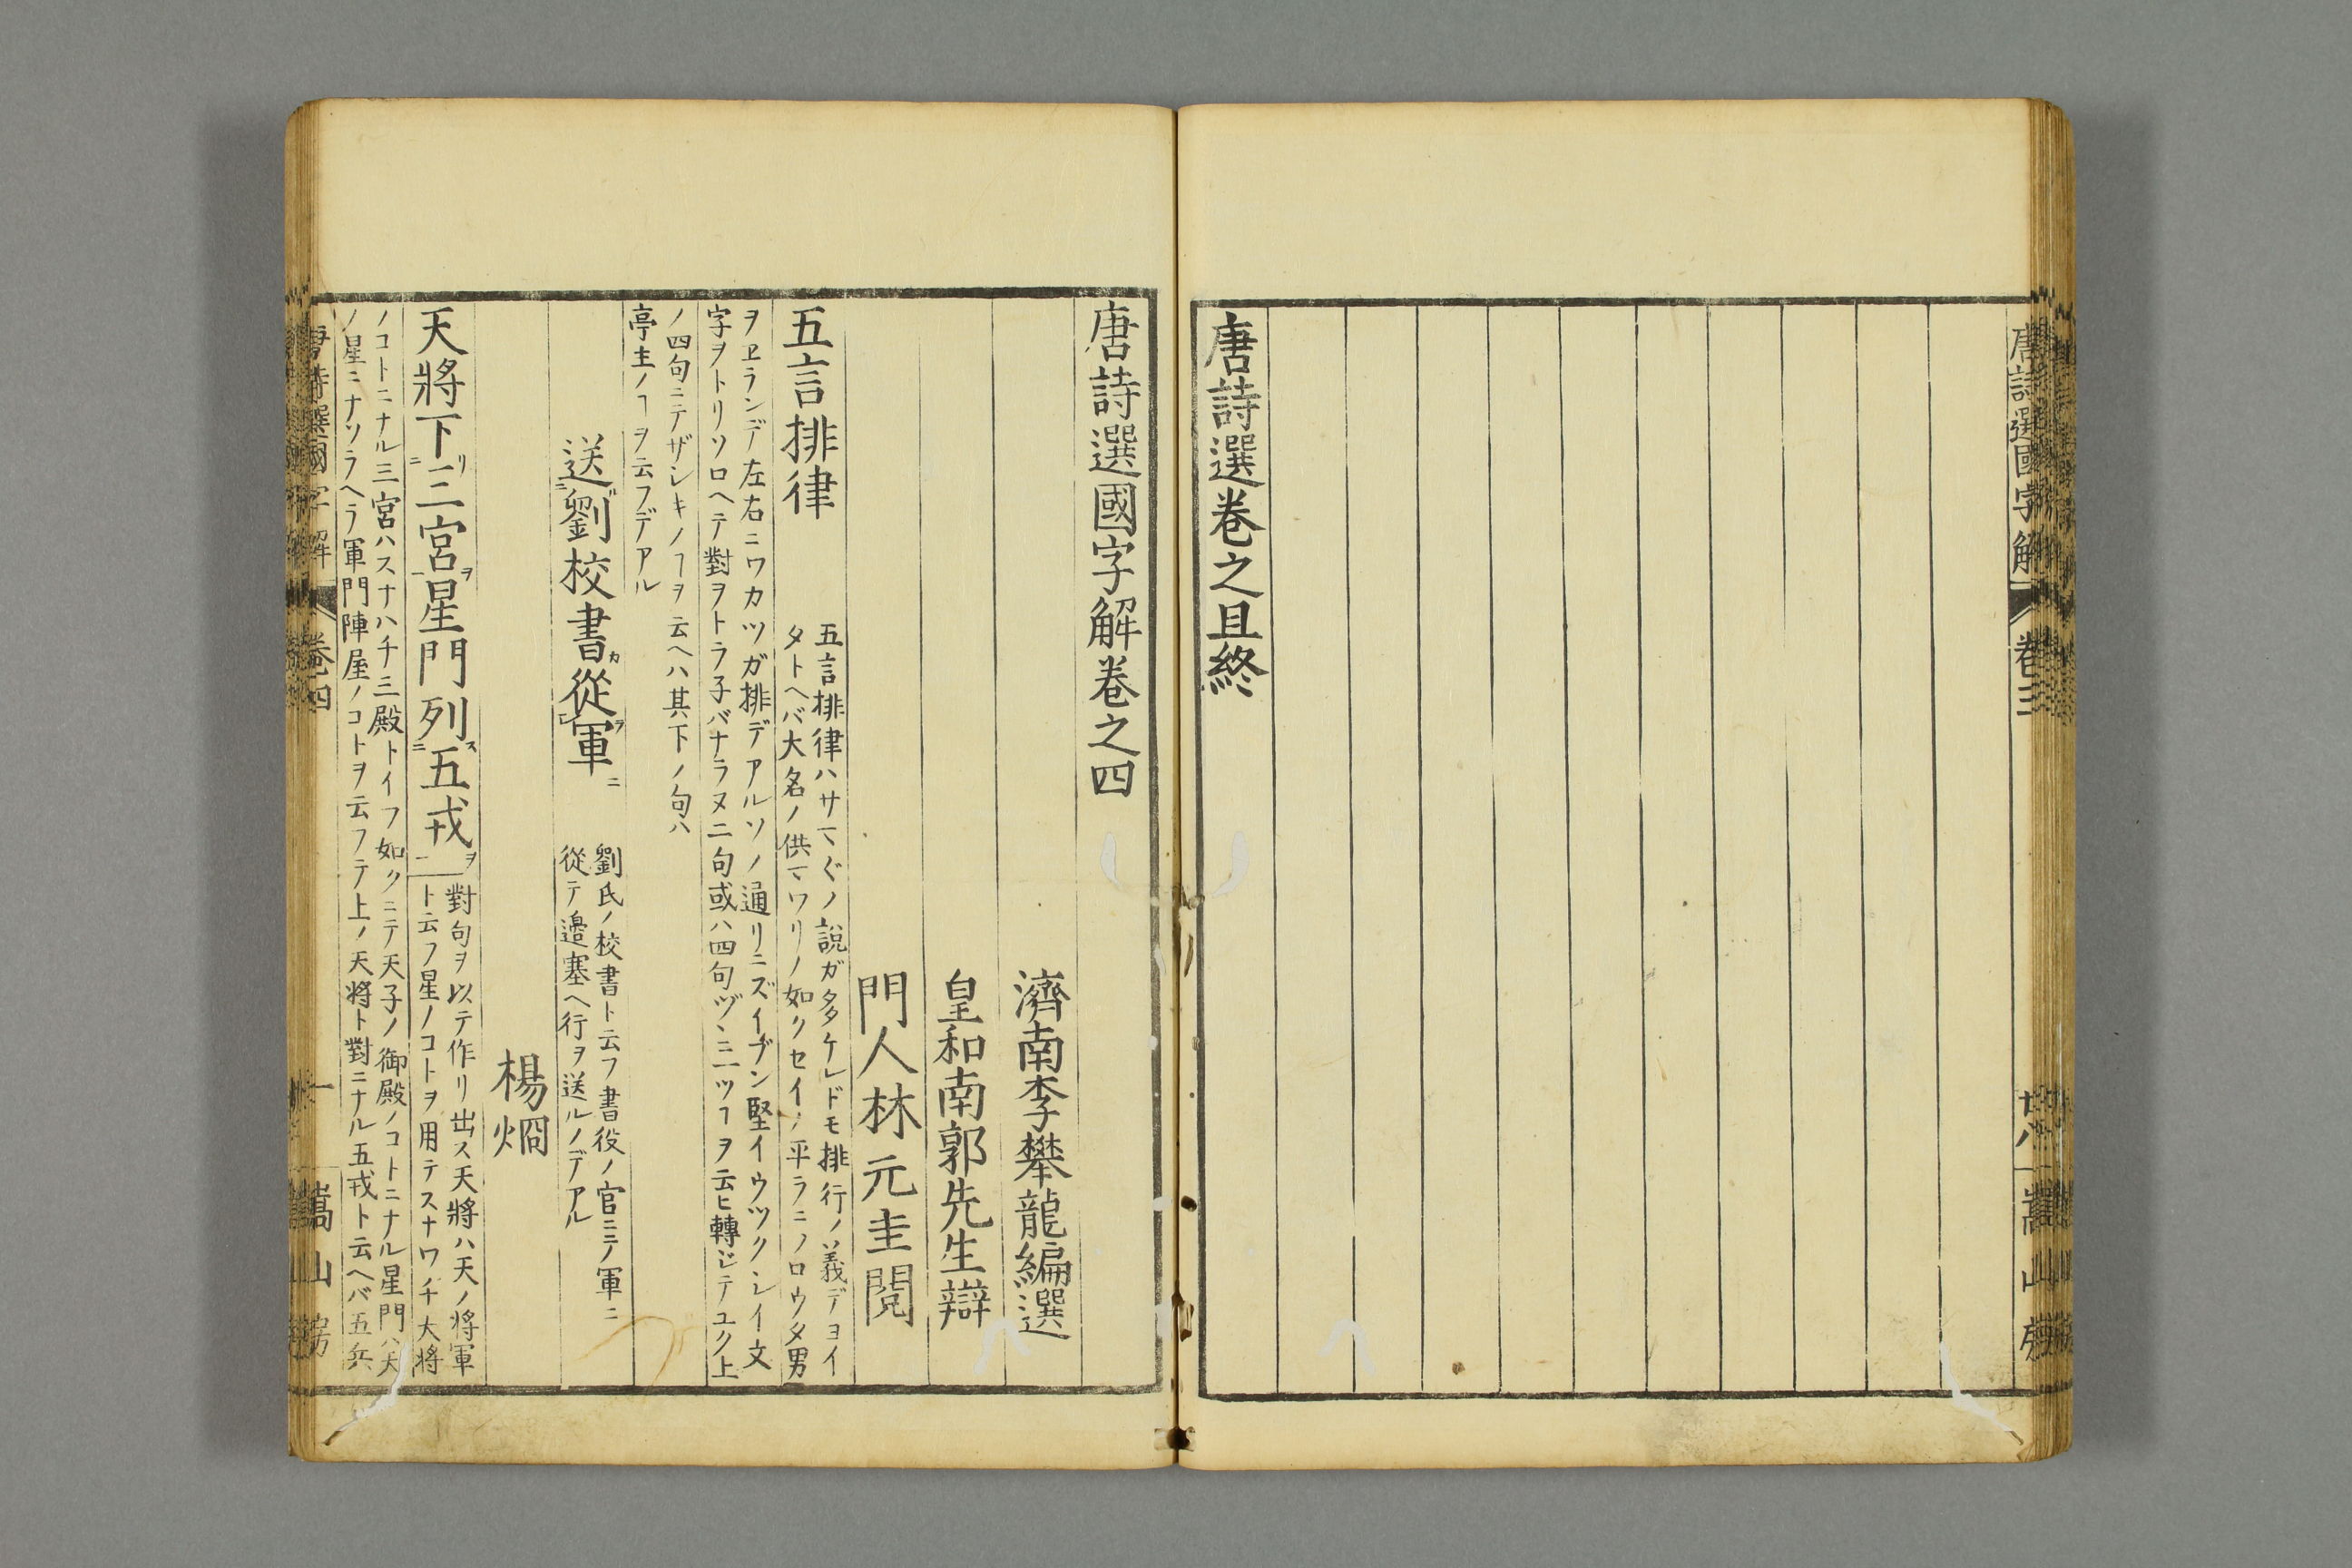 唐詩選國字解
卷三
嵩山房
唐詩選卷之三終
唐詩選國字解卷之四
濟南李攀龍編選
皇和南郭先生辯
門人林元圭閲
五言排律
五言排律ハサマ〴〵ノ説ガ多ケレドモ排行ノ義デヨイ
タトヘバ大名ノ供マワリノ如クセイノ平ラニソロウタ男
ヲヱランデ左右ニワカツガ排デアルソノ通リニズイブン堅イウツクシイ文
字ヲトリソロヘテ對ヲトラ子バナラヌ二句或ハ四句ヅヽ三ツヿヲ云ヒ轉ジテユク上
ノ四句ニテザシキノヿヲ云ヘハ其下ノ句ハ
亭主ノヿヲ云フデアル
送劉校書從軍
劉氏ノ校書ト云フ書役ノ官ニテ軍ニ
從テ邉塞ヘ行ヲ送ルノデアル
楊烱
天將下三宮星門列五戎
對句ヲ以テ作リ出ス天將ハ天ノ將軍
ト云フ星ノコトヲ用テスナワチ大將
ノコトニナル三宮ハスナハチ三殿トイフ如クニテ天子ノ御殿ノコトニナル星門ハ天
ノ星ニナソラヘテ軍門陣屋ノコトヲ云フテ上ノ天將ト對ニナル五戎ト云ヘバ五兵
唐詩選國字解
卷四
一
嵩山房